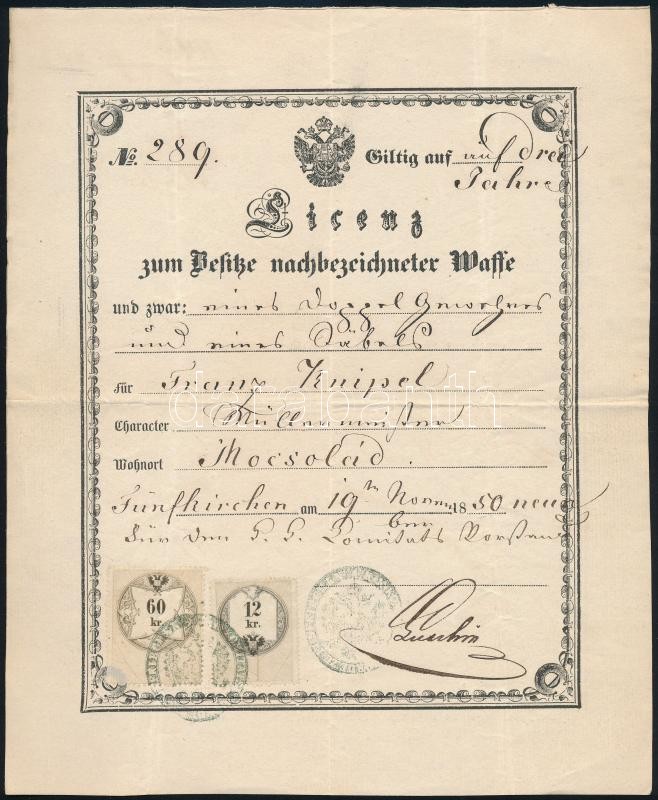 No. 289.
Giltig auf auf drei
Jahre
Licenz
zum Besitze nachbezeichneter Waffe
und zwar: eines Doppel Gewehres
und eines Säbels
für Franz Knipel
Character Müllermeister
Wohnort Mocsolád.
Fünfkirchen am 19ten Novem 1850
ber
Für den k. k. Comitats Vorstand
60
kr.
12
kr.
darabanth